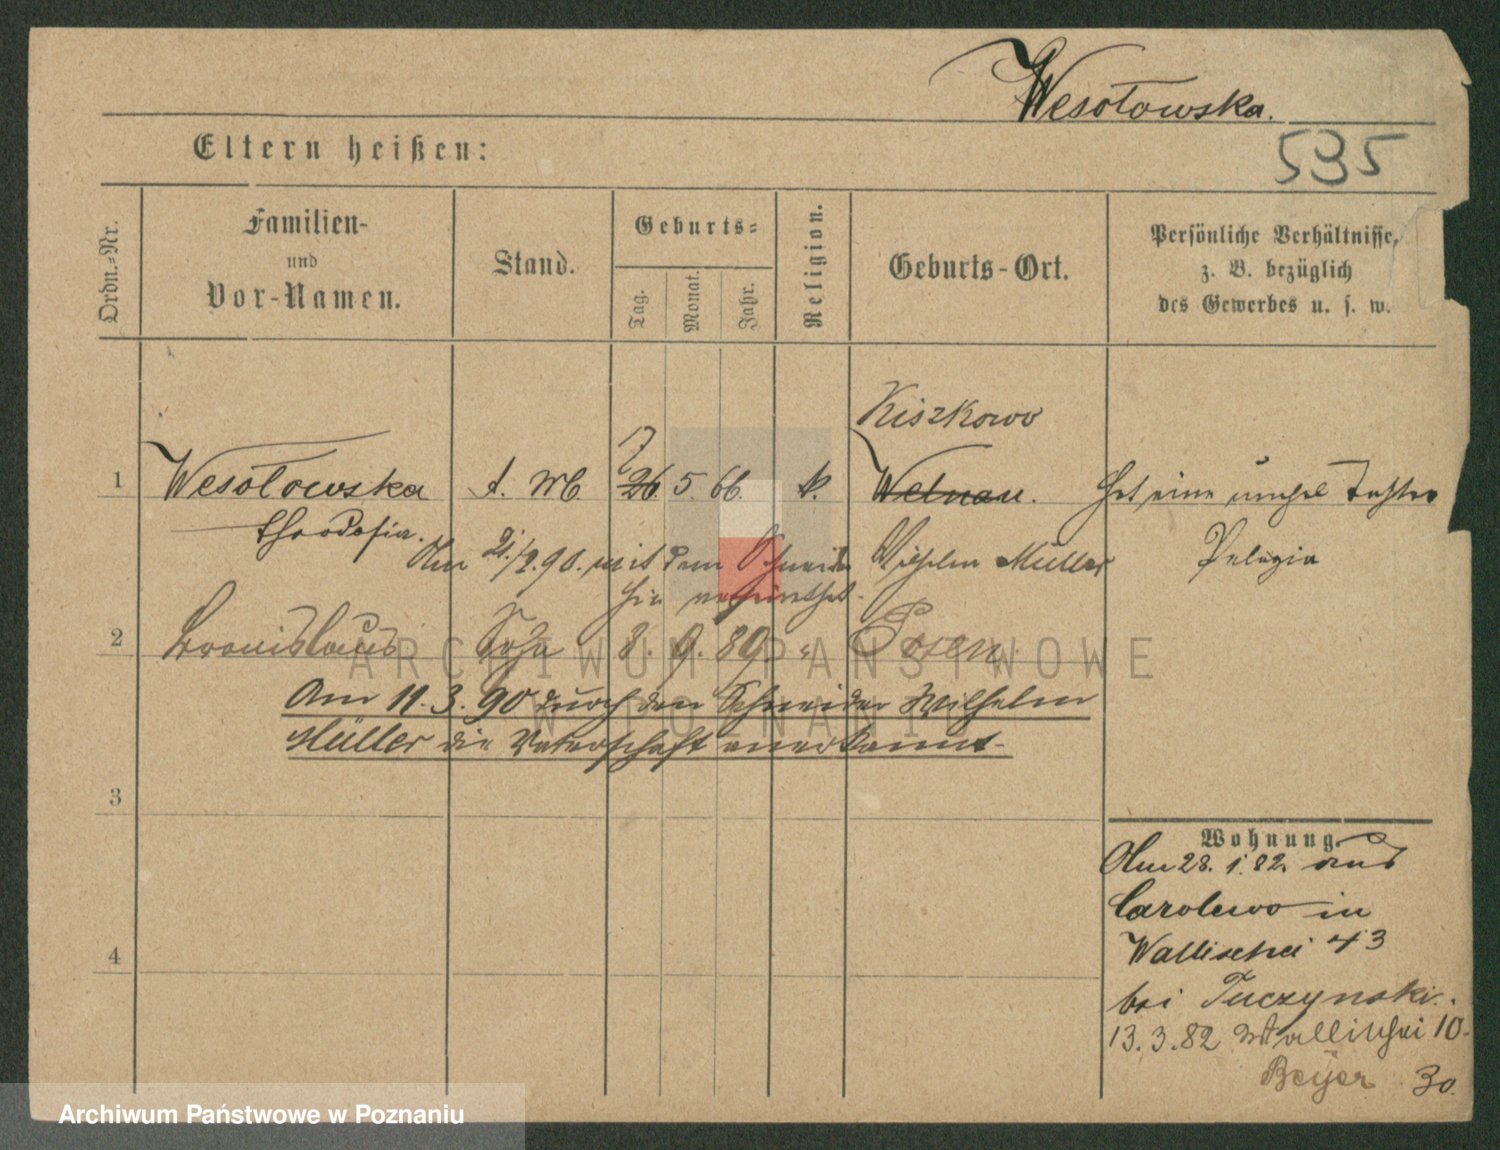 Wesołowska.
535
Eltern heißen:
Ordn.=Nr.
Familien-
und
Vor-Namen.
Stand.
Geburts=
Tag.
Monat.
Jahr.
Religion.
Geburts-Ort.
Persönliche Verhältnisse,
z. B. bezüglich
des Gewerbes u. s. w.
Kiszkowo
1 Wesołowska 26 5. 66. k. Welnau. Hat eine unehel Tochter
Theodosia.
Pelagia
Am 2./2.90. mit dem Schneider Wilhelm Müller
hier verheirathet.
2 Bronislaus Sohn 8. 9. 89. " Posen
Am 11.3.90 durch den Schneider Wilhelm
Müller die Vaterschaft anerkannt-
3
4
Wohnung
Am 28. 1. 82. aus
Carolewo in
Wallischei 43
bei Tuczynski.
13.3.82 Wallischei 10.
Beyer 30.
ARCHIWUM PAŃSTWOWE
W POZNANIU
Archiwum Państwowe w Poznaniu